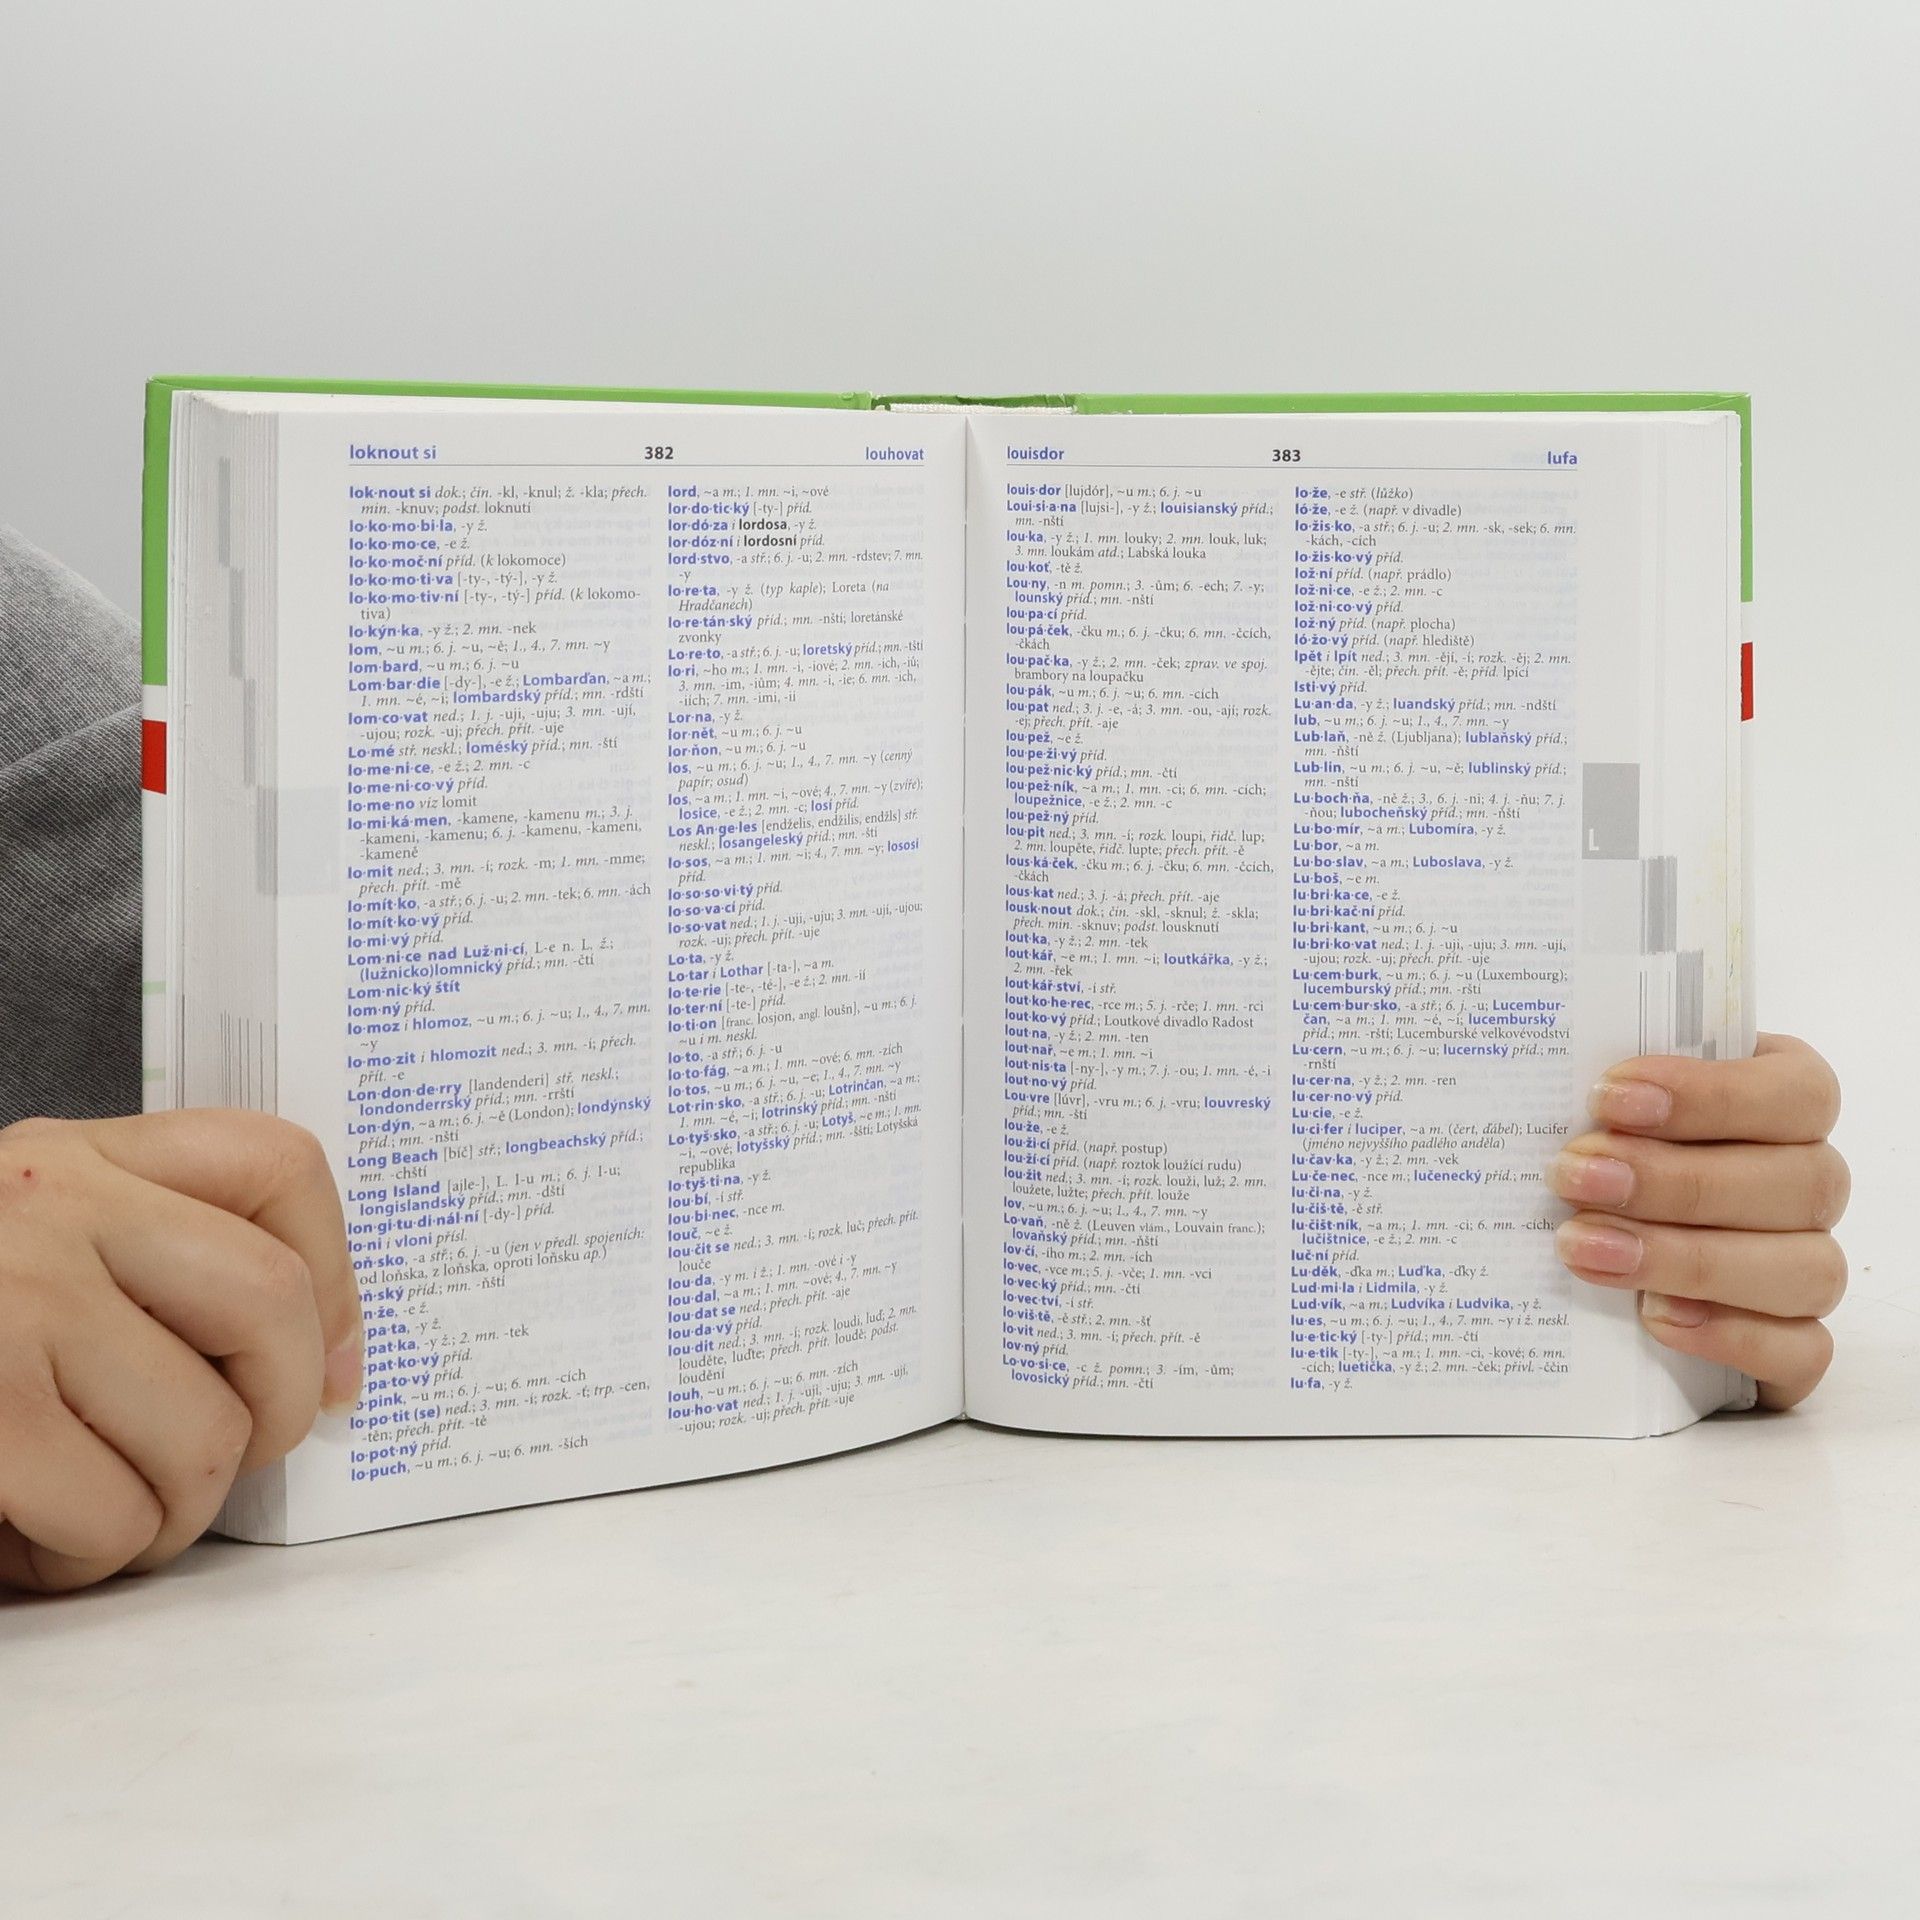 loknout si 382 louhovat
lok·nout si dok.; čin. -kl, -knul; ž. -kla; přech.
min. -knuv; podst. loknutí
lo·ko·mo·bi·la, -y ž.
lo·ko·mo·ce, -e ž.
lo·ko·moč·ní příd. (k lokomoce)
lo·ko·mo·ti·va [-ty-, -tý-], -y ž.
lo·ko·mo·tiv·ní [-ty-, -tý-] příd. (k lokomo-
tiva)
lo·kýn·ka, -y ž.; 2. mn. -nek
lom, ~u m.; 6. j. ~u, ~ě; 1., 4., 7. mn. ~y
lom·bard, ~u m.; 6. j. ~u
Lom·bar·die [-dy-], -e ž.; Lombarďan, ~a m.;
1. mn. ~é, ~i; lombardský příd.; mn. -rdští
lom·co·vat ned.; 1. j. -uji, -uju; 3. mn. -ují,
-ujou; rozk. -uj; přech. přít. -uje
Lo·mé stř. neskl.; loméský příd.; mn. -ští
lo·me·ni·ce, -e ž.; 2. mn. -c
lo·me·ni·co·vý příd.
lo·me·no viz lomit
lo·mi·ká·men, -kamene, -kamenu m.; 3. j.
-kameni, -kamenu; 6. j. -kamenu, -kameni,
-kameně
lo·mit ned.; 3. mn. -í; rozk. -m; 1. mn. -mme;
přech. přít. -mě
lo·mít·ko, -a stř.; 6. j. -u; 2. mn. -tek; 6. mn. -ách
lo·mít·ko·vý příd.
lo·mi·vý příd.
Lom·ni·ce nad Luž·ni·cí, L-e n. L, ž.;
(lužnicko)lomnický příd.; mn. -čtí
Lom·nic·ký štít
lom·ný příd.
lo·moz i hlomoz, ~u m.; 6. j. ~u; 1., 4., 7. mn.
~y
lo·mo·zit i hlomozit ned.; 3. mn. -í; přech.
přít. -e
Lon·don·de·rry [landenderi] stř. neskl.;
londonderrský příd.; mn. -rrští
Lon·dýn, ~a m.; 6. j. ~ě (London); londýnský
příd.; mn. -nští
Long Beach [bíč] stř.; longbeachský příd.;
mn. -chští
Long Island [ajle-], L. I-u m.; 6. j. I-u;
longislandský příd.; mn. -dští
lon·gi·tu·di·nál·ní [-dy-] příd.
lo·ni i vloni přísl.
oň·sko, -a stř.; 6. j. -u (jen v předl. spojeních:
od loňska, z loňska, oproti loňsku ap.)
ň·ský příd.; mn. -ňští
n·že, -e ž.
pa·ta, -y ž.
pat·ka, -y ž.; 2. mn. -tek
pat·ko·vý příd.
pa·to·vý příd.
o·pink, ~u m.; 6. j. ~u; 6. mn. -cích
lo·po·tit (se) ned.; 3. mn. -í; rozk. -ť; trp. -cen,
-těn; přech. přít. -tě
lo·pot·ný příd.
lo·puch, ~u m.; 6. j. ~u; 6. mn. -ších
lord, ~a m.; 1. mn. ~i, ~ové
lor·do·tic·ký [-ty-] příd.
lor·dó·za i lordosa, -y ž.
lor·dóz·ní i lordosní příd.
lord·stvo, -a stř.; 6. j. -u; 2. mn. -rdstev; 7. mn.
-y
lo·re·ta, -y ž. (typ kaple); Loreta (na
Hradčanech)
lo·re·tán·ský příd.; mn. -nští; loretánské
zvonky
Lo·re·to, -a stř.; 6. j. -u; loretský příd.; mn. -tští
lo·ri, ~ho m.; 1. mn. -i, -iové; 2. mn. -ich, -iů;
3. mn. -im, -iům; 4. mn. -i, -ie; 6. mn. -ich,
-iích; 7. mn. -imi, -ii
Lor·na, -y ž.
lor·nět, ~u m.; 6. j. ~u
lor·ňon, ~u m.; 6. j. ~u
los, ~u m.; 6. j. ~u; 1., 4., 7. mn. ~y (cenný
papír; osud)
los, ~a m.; 1. mn. ~i, ~ové; 4., 7. mn. ~y (zvíře);
losice, -e ž.; 2. mn. -c; losí příd.
Los An·ge·les [endželis, endžilis, endžls] stř.
neskl.; losangeleský příd.; mn. -ští
lo·sos, ~a m.; 1. mn. ~i; 4., 7. mn. ~y; lososí
příd.
lo·so·so·vi·tý příd.
lo·so·va·cí příd.
lo·so·vat ned.; 1. j. -uji, -uju; 3. mn. -ují, -ujou;
rozk. -uj; přech. přít. -uje
Lo·ta, -y ž.
Lo·tar i Lothar [-ta-], ~a m.
lo·te·rie [-te-, -té-], -e ž.; 2. mn. -ií
lo·ter·ní [-te-] příd.
lo·ti·on [franc. losjon, angl. loušn], ~u m.; 6. j.
~u i m. neskl.
lo·to, -a stř.; 6. j. -u
lo·to·fág, ~a m.; 1. mn. ~ové; 6. mn. -zích
lo·tos, ~u m.; 6. j. ~u, ~e; 1., 4., 7. mn. ~y
Lot·rin·sko, -a stř.; 6. j. -u; Lotrinčan, ~a m.;
1. mn. ~é, ~i; lotrinský příd.; mn. -nští
Lo·tyš·sko, -a stř.; 6. j. -u; Lotyš, ~e m.; 1. mn.
~i, ~ové; lotyšský příd.; mn. -šští; Lotyšská
republika
lo·tyš·ti·na, -y ž.
lou·bí, -í stř.
lou·bi·nec, -nce m.
louč, ~e ž.
lou·čit se ned.; 3. mn. -í; rozk. luč; přech. přít.
louče
lou·da, -y m. i ž.; 1. mn. -ové i -y
lou·dal, ~a m.; 1. mn. ~ové; 4., 7. mn. ~y
lou·dat se ned.; přech. přít. -aje
lou·da·vý příd.
lou·dit ned.; 3. mn. -í; rozk. loudi, luď; 2. mn.
louděte, luďte; přech. přít. loudě; podst.
loudění
louh, ~u m.; 6. j. ~u; 6. mn. -zích
lou·ho·vat ned.; 1. j. -uji, -uju; 3. mn. -ují,
-ujou; rozk. -uj; přech. přít. -uje
louisdor 383 lufa
louis·dor [lujdór], ~u m.; 6. j. ~u
Loui·si·a·na [lujsi-], -y ž.; louisianský příd.;
mn. -nští
lou·ka, -y ž.; 1. mn. louky; 2. mn. louk, luk;
3. mn. loukám atd.; Labská louka
lou·koť, -tě ž.
Lou·ny, -n m. pomn.; 3. -ům; 6. -ech; 7. -y;
lounský příd.; mn. -nští
lou·pa·cí příd.
lou·pá·ček, -čku m.; 6. j. -čku; 6. mn. -čcích,
-čkách
lou·pač·ka, -y ž.; 2. mn. -ček; zprav. ve spoj.
brambory na loupačku
lou·pák, ~u m.; 6. j. ~u; 6. mn. -cích
lou·pat ned.; 3. j. -e, -á; 3. mn. -ou, -ají; rozk.
-ej; přech. přít. -aje
lou·pež, ~e ž.
lou·pe·ži·vý příd.
lou·pež·nic·ký příd.; mn. -čtí
lou·pež·ník, ~a m.; 1. mn. -ci; 6. mn. -cích;
loupežnice, -e ž.; 2. mn. -c
lou·pež·ný příd.
lou·pit ned.; 3. mn. -í; rozk. loupi, řidč. lup;
2. mn. loupěte, řidč. lupte; přech. přít. -ě
lous·ká·ček, -čku m.; 6. j. -čku; 6. mn. -čcích,
-čkách
lous·kat ned.; 3. j. -á; přech. přít. -aje
lousk·nout dok.; čin. -skl, -sknul; ž. -skla;
přech. min. -sknuv; podst. lousknutí
lout·ka, -y ž.; 2. mn. -tek
lout·kář, ~e m.; 1. mn. ~i; loutkářka, -y ž.;
2. mn. -řek
lout·kář·ství, -í stř.
lout·ko·he·rec, -rce m.; 5. j. -rče; 1. mn. -rci
lout·ko·vý příd.; Loutkové divadlo Radost
lout·na, -y ž.; 2. mn. -ten
lout·nař, ~e m.; 1. mn. ~i
lout·nis·ta [-ny-], -y m.; 7. j. -ou; 1. mn. -é, -i
lout·no·vý příd.
Lou·vre [lúvr], -vru m.; 6. j. -vru; louvreský
příd.; mn. -ští
lou·že, -e ž.
lou·ži·cí příd. (např. postup)
lou·ží·cí příd. (např. roztok loužící rudu)
lou·žit ned.; 3. mn. -í; rozk. louži, luž; 2. mn.
loužete, lužte; přech. přít. louže
lov, ~u m.; 6. j. ~u; 1., 4., 7. mn. ~y
Lo·vaň, -ně ž. (Leuven vlám., Louvain franc.);
lovaňský příd.; mn. -ňští
lov·čí, -ího m.; 2. mn. -ích
lo·vec, -vce m.; 5. j. -vče; 1. mn. -vci
lo·vec·ký příd.; mn. -čtí
lo·vec·tví, -í stř.
lo·viš·tě, -ě stř.; 2. mn. -šť
lo·vit ned.; 3. mn. -í; přech. přít. -ě
lov·ný příd.
Lo·vo·si·ce, -c ž. pomn.; 3. -ím, -ům;
lovosický příd.; mn. -čtí
lo·že, -e stř. (lůžko)
ló·že, -e ž. (např. v divadle)
lo·žis·ko, -a stř.; 6. j. -u; 2. mn. -sk, -sek; 6. mn.
-kách, -cích
lo·žis·ko·vý příd.
lož·ní příd. (např. prádlo)
lož·ni·ce, -e ž.; 2. mn. -c
lož·ni·co·vý příd.
lož·ný příd. (např. plocha)
ló·žo·vý příd. (např. hlediště)
lpět i lpít ned.; 3. mn. -ějí, -í; rozk. -ěj; 2. mn.
-ějte; čin. -ěl; přech. přít. -ě; příd. lpící
lsti·vý příd.
Lu·an·da, -y ž.; luandský příd.; mn. -ndští
lub, ~u m.; 6. j. ~u; 1., 4., 7. mn. ~y
Lub·laň, -ně ž. (Ljubljana); lublaňský příd.;
mn. -ňští
Lub·lin, ~u m.; 6. j. ~u, ~ě; lublinský příd.;
mn. -nští
Lu·boch·ňa, -ně ž.; 3., 6. j. -ni; 4. j. -ňu; 7. j.
-ňou; lubocheňský příd.; mn. -ňští
Lu·bo·mír, ~a m.; Lubomíra, -y ž.
Lu·bor, ~a m.
Lu·bo·slav, ~a m.; Luboslava, -y ž.
Lu·boš, ~e m.
lu·bri·ka·ce, -e ž.
lu·bri·kač·ní příd.
lu·bri·kant, ~u m.; 6. j. ~u
lu·bri·ko·vat ned.; 1. j. -uji, -uju; 3. mn. -ují,
-ujou; rozk. -uj; přech. přít. -uje
Lu·cem·burk, ~u m.; 6. j. ~u (Luxembourg);
lucemburský příd.; mn. -rští
Lu·cem·bur·sko, -a stř.; 6. j. -u; Lucembur-
čan, ~a m.; 1. mn. ~é, ~i; lucemburský
příd.; mn. -rští; Lucemburské velkovévodství
Lu·cern, ~u m.; 6. j. ~u; lucernský příd.; mn.
-rnští
lu·cer·na, -y ž.; 2. mn. -ren
lu·cer·no·vý příd.
Lu·cie, -e ž.
lu·ci·fer i luciper, ~a m. (čert, ďábel); Lucifer
(jméno nejvyššího padlého anděla)
lu·čav·ka, -y ž.; 2. mn. -vek
Lu·če·nec, -nce m.; lučenecký příd.; mn.
lu·či·na, -y ž.
lu·čiš·tě, -ě stř.
lu·čišt·ník, ~a m.; 1. mn. -ci; 6. mn. -cích;
lučištnice, -e ž.; 2. mn. -c
luč·ní příd.
Lu·děk, -ďka m.; Luďka, -ďky ž.
Lud·mi·la i Lidmila, -y ž.
Lud·vík, ~a m.; Ludvíka i Ludvika, -y ž.
lu·es, ~u m.; 6. j. ~u; 1., 4., 7. mn. ~y i ž. neskl.
lu·e·tic·ký [-ty-] příd.; mn. -čtí
lu·e·tik [-ty-], ~a m.; 1. mn. -ci, -kové; 6. mn.
-cích; luetička, -y ž.; 2. mn. -ček; přivl. -ččin
lu·fa, -y ž.
L